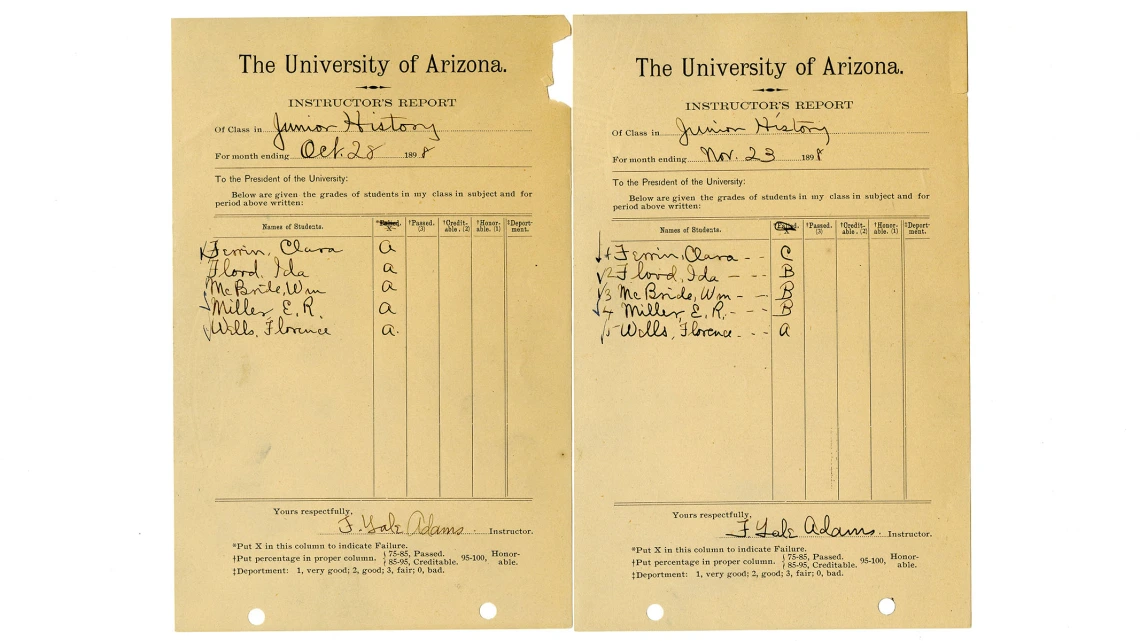 The University of Arizona.
INSTRUCTOR'S REPORT
Of Class in Junior History
For month ending Oct. 28 1898
To the President of the University:
Below are given the grades of students in my class in subject and for
period above written:
Names of Students. *Failed. X †Passed. (3) †Credit-able. (2) †Honor-able. (1) ‡Deport-ment.
Ferrin, Clara A
Flood, Ida A
McBride, Wm A
Miller, E. R. A
Wells, Florence A.
Yours respectfully,
F. Yale Adams. Instructor.
*Put X in this column to indicate Failure.
†Put percentage in proper column. { 75-85, Passed. 85-95, Creditable. 95-100, Honor-able.
‡Deportment: 1, very good; 2, good; 3, fair; 0, bad.
The University of Arizona.
INSTRUCTOR'S REPORT
Of Class in Junior History
For month ending Nov. 23 1898
To the President of the University:
Below are given the grades of students in my class in subject and for
period above written:
Names of Students. *Failed. X †Passed. (3) †Credit-able. (2) †Honor-able. (1) ‡Deport-ment.
1 Ferrin, Clara - - C
2 Flood, Ida - - - B
3 McBride, Wm - - - B
4 Miller, E. R. - - - B
5 Wells, Florence - - - A
Yours respectfully,
F. Yale Adams. Instructor.
*Put X in this column to indicate Failure.
†Put percentage in proper column. { 75-85, Passed. 85-95, Creditable. 95-100, Honor-able.
‡Deportment: 1, very good; 2, good; 3, fair; 0, bad.